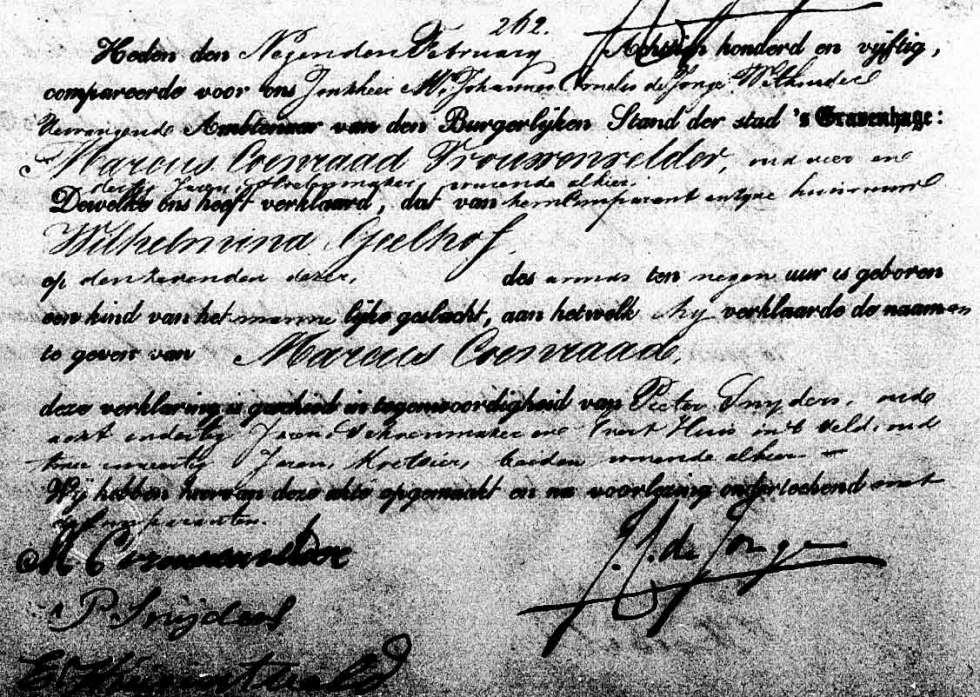 262.
Heden den Negenden February Achttien honderd en vijftig,
compareerde voor ons Jonkheer Mr. Johannes de Jonge Wethouder
Ambtenaar van den Burgerlyken Stand der stad 's Gravenhage:
Marcus Coenraad Trouwenvelder, oud vier en
dertig Jaren, wonende alhier.
Dewelke ons heeft verklaard, dat van hem Comparant en zyne huisvrouw
Wilhelmina Geelhof
op den zevenden dezer, des avonds ten negen uur is geboren
een kind van het manne lyke geslacht, aan hetwelk hy verklaarde de naamen
te geven van Marcus Coenraad,
deze verklaring is geschied in tegenwoordigheid van Pieter Snyders, oud
acht en dertig Jaren, Schoenmaker en Evert Huis in 't Veld, oud
twee en veertig Jaren, beiden wonende alhier
Wy hebben hiervan deze akte opgemaakt en na voorlezing onderteekend met
comparanten.
M. C.
P. Snijders
J. J. de Jonge